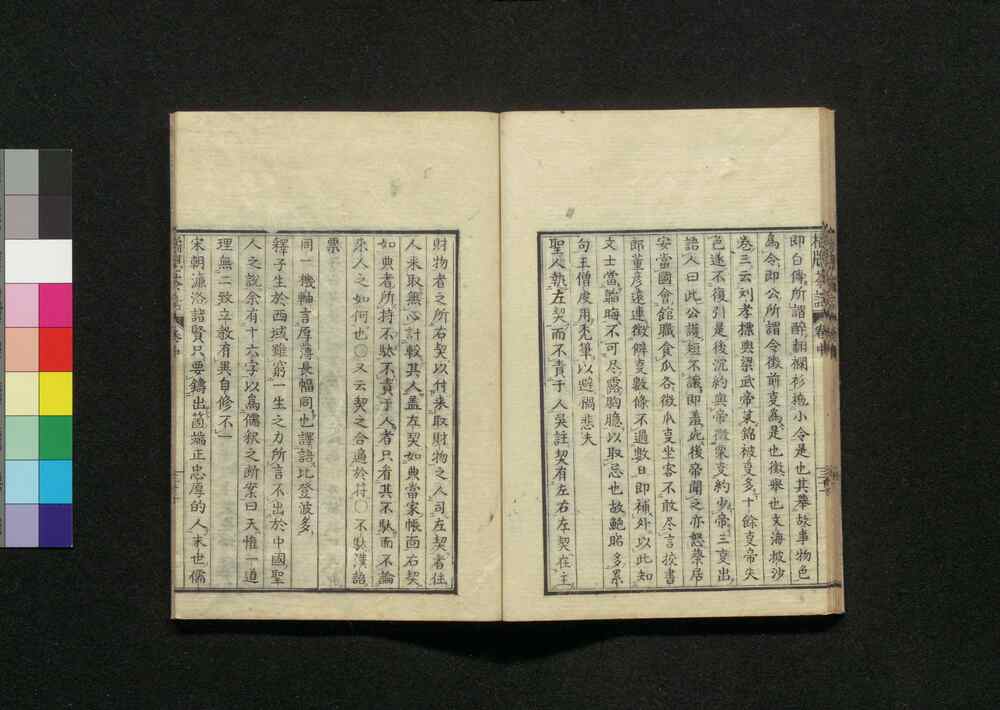 即白傳所謂醉翻襴衫抛小令是也其舉故事物色
爲令即公所謂令徵前事爲是也徵學也文海披沙
卷三云刘孝標與梁武帝策錦被事多十餘事帝失
色遂不復引是後沉約與帝徵栗事約少帝三事出
語人曰此公護短不讓即羞死後帝聞之亦怒榮居
安當國會館職食瓜各徵瓜事坐客不敢尽言挍書
郎董彦遠連徵僻事數條不過數日即補外以此知
文士當韜晦不可尽露胸臆以取忌也故鮑昭多累
句王僧虔用禿筆以避禍悲夫
聖人執左契而不責于人吳註契有左右左契在主
財物者之所右契以付来取財物之人司左契者任
人来取無心計較其人盖左契如典當家帳面右契
如典者所持不駄不責于人者只看其不駄而不論
来人之如何也○又云契之合適於符○不駄漢諂
票
同一機軸言厚薄長幅同也譯語比登波多
釋子生於西域雖窮一生之力所言不出於中國聖
人之說余有十六字以爲儒釈之断案曰天惟一道
理無二致立教有異自修不一
宋朝濂洛諸賢只要鑄出箇端正忠厚的人末世儒